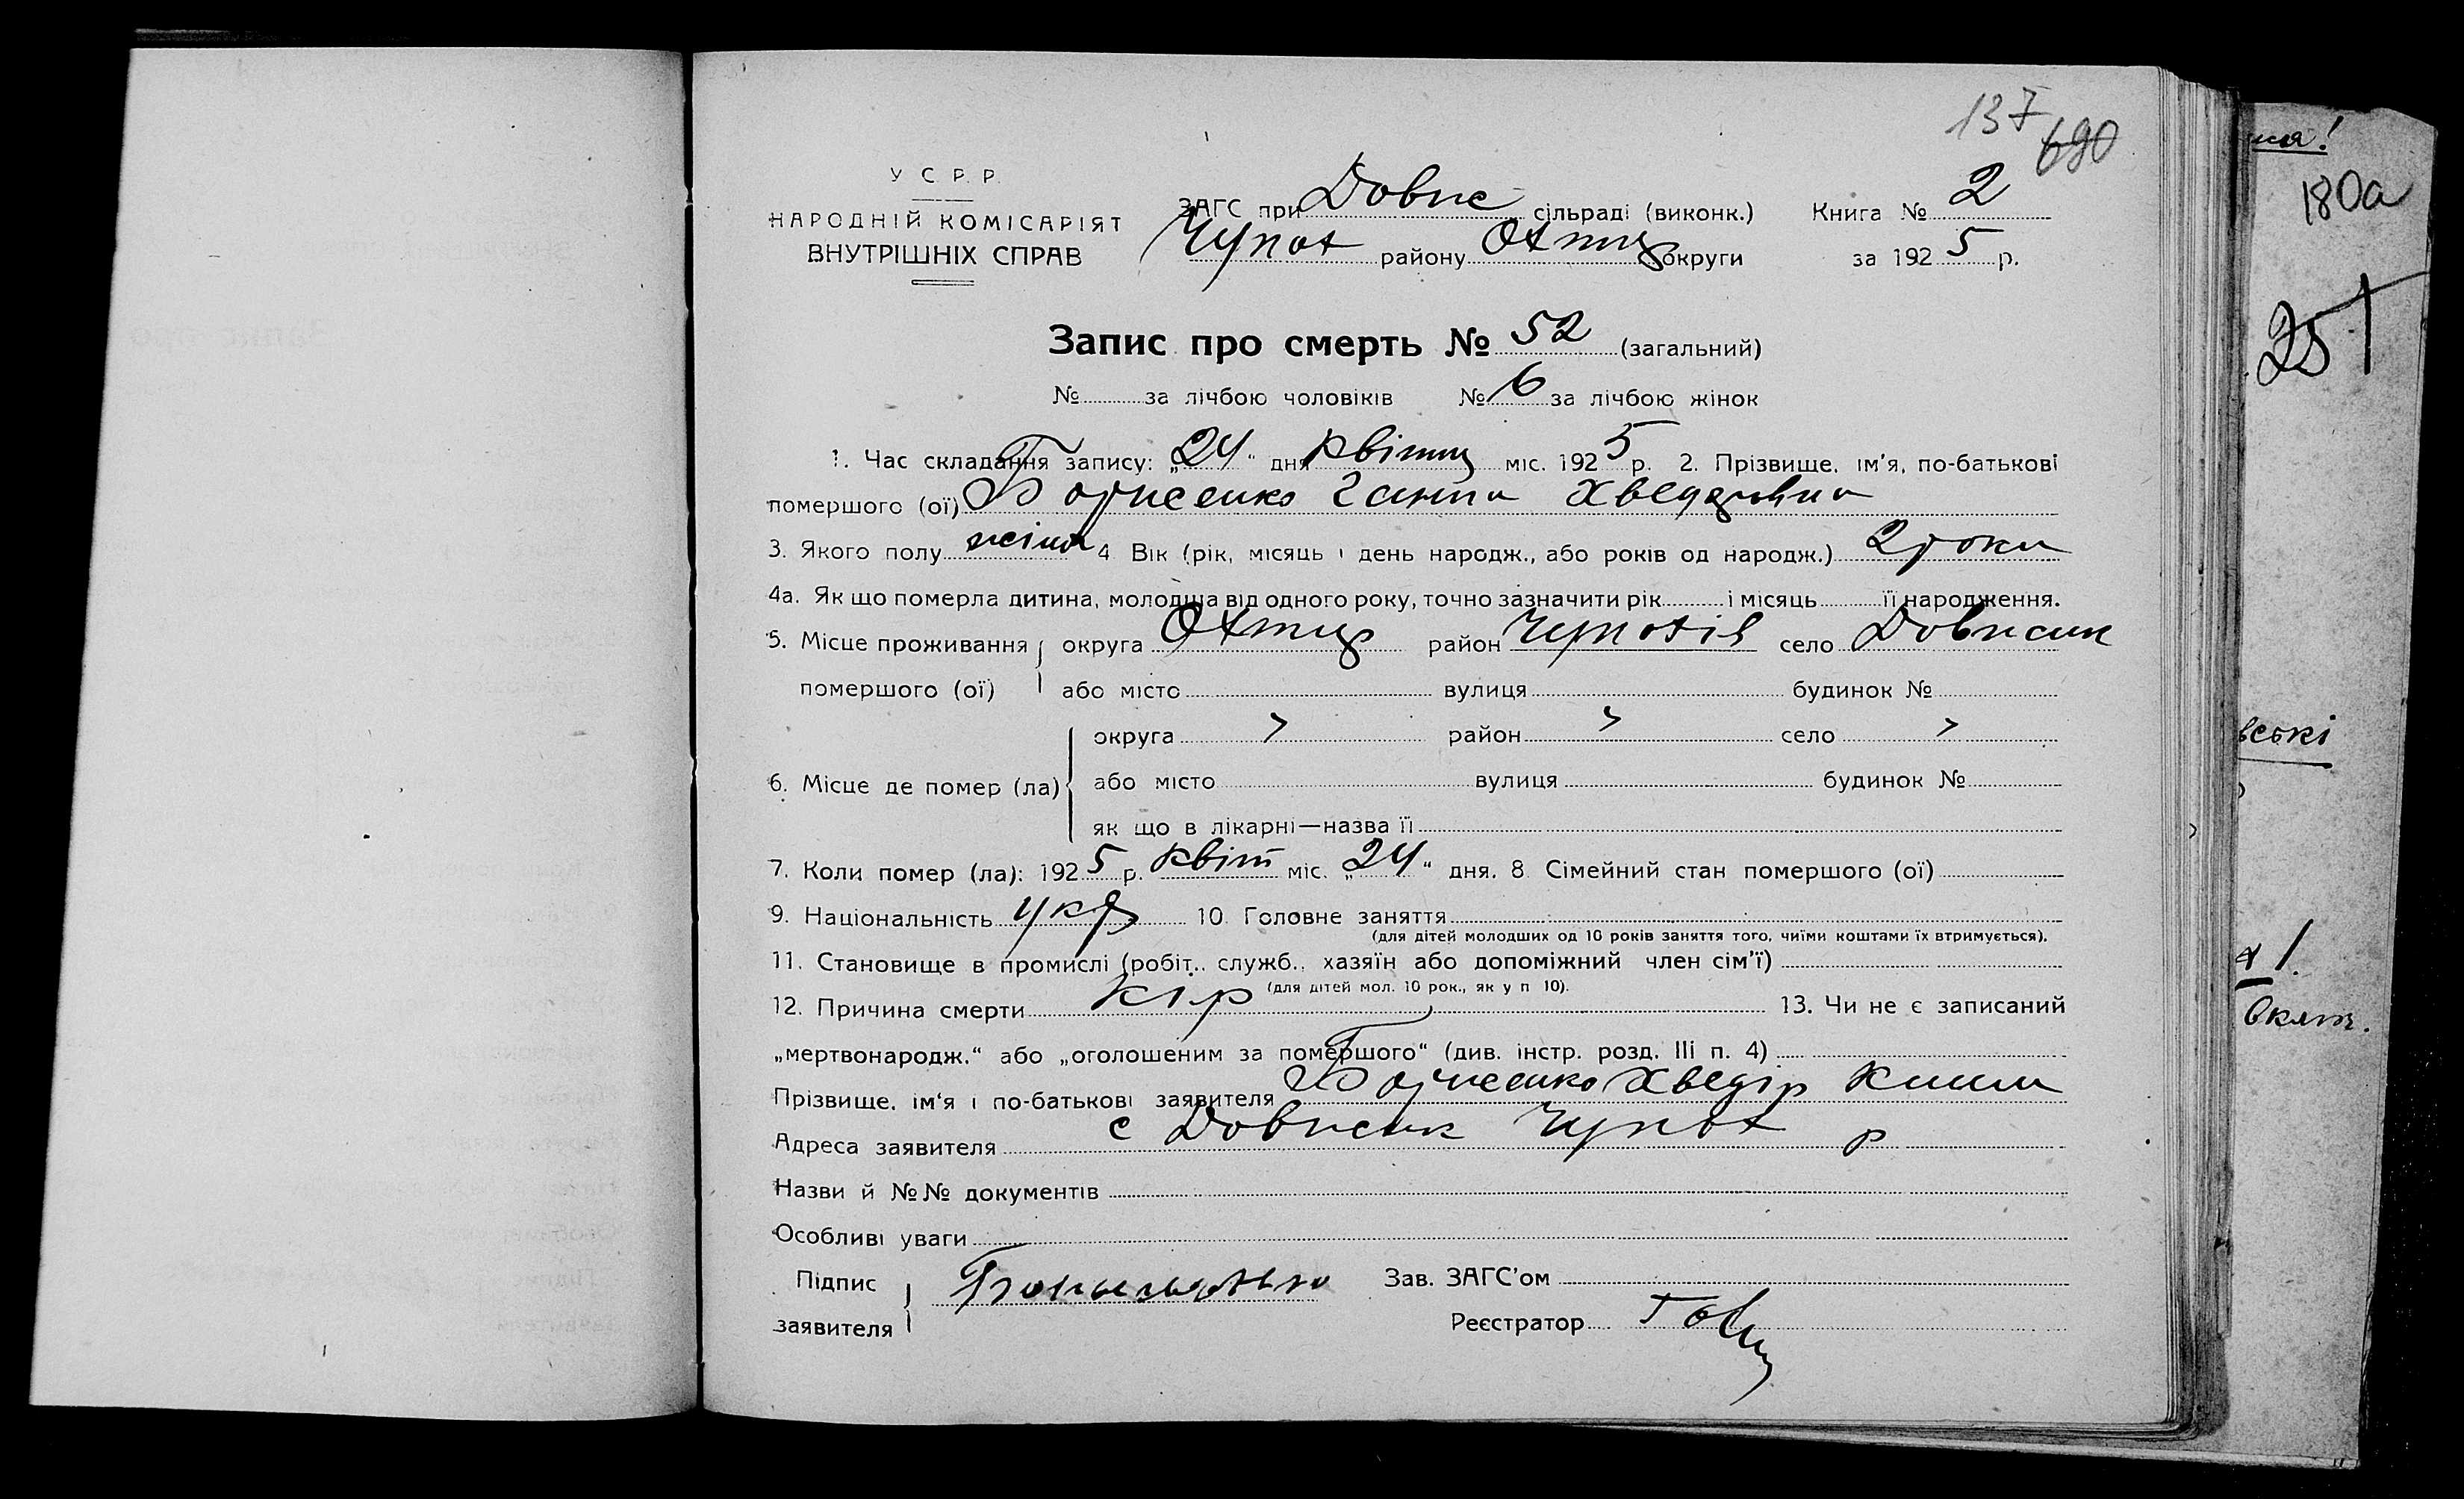 137
690
У С Р. Р.
НАРОДНІЙ КОМІСАРІЯТ
ВНУТРІШНІХ СПРАВ
ЗАГС при Довис сільраді (виконк.)
Чупах району Охтир округи
Книга № 2
за 1925 р.
Запис про смерть № 52 (загальний)
№ за лічбою чоловіків № 6 за лічбою жінок
1. Час складання запису: „24" дня квітн міс. 1925 р. 2. Прізвище, ім'я, по-батькові
помершого (ої) Борисенко Ганна Хведорівна
3. Якого полу жіноч 4 Вік (рік, місяць і день народж., або років од народж.) 2 роки
4а. Як що померла дитина, молодша від одного року, точно зазначити рік і місяць її народження.
5. Місце проживання округа Охтир район Чупахів село
помершого (ої) або місто вулиця будинок №
округа " район " село "
6. Місце де помер (ла) або місто вулиця будинок №
як що в лікарні—назва її
7. Коли помер (ла): 1925 р. квіт міс. „24" дня. 8. Сімейний стан помершого (ої)
9. Національність укр 10. Головне заняття
(для дітей молодших од 10 років заняття того, чиїми коштами їх втримується).
11. Становище в промислі (робіт., служб., хазяїн або допоміжний член сім'ї)
(для дітей мол. 10 рок., як у п 10).
12. Причина смерти кір 13. Чи не є записаний
„мертвонародж." або „оголошеним за помершого" (див. інстр. розд. III п. 4)
Прізвище, ім'я і по-батькові заявителя Борисенко Хведір
Адреса заявителя с Чупах р
Назви й №№ документів
Особливі уваги
Підпис
заявителя
Зав. ЗАГС'ом
Реєстратор
180а
251
вські